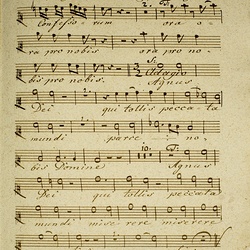 Confessorum ora o-
ra pro nobis ora pro no-
S:
bis pro nobis. Adagio Agnus
Dei qui tollis peccata
mundi parce no,
10. T:
bis Domine Agnus
Dei qui tollis peccata
mundi miserere miserere